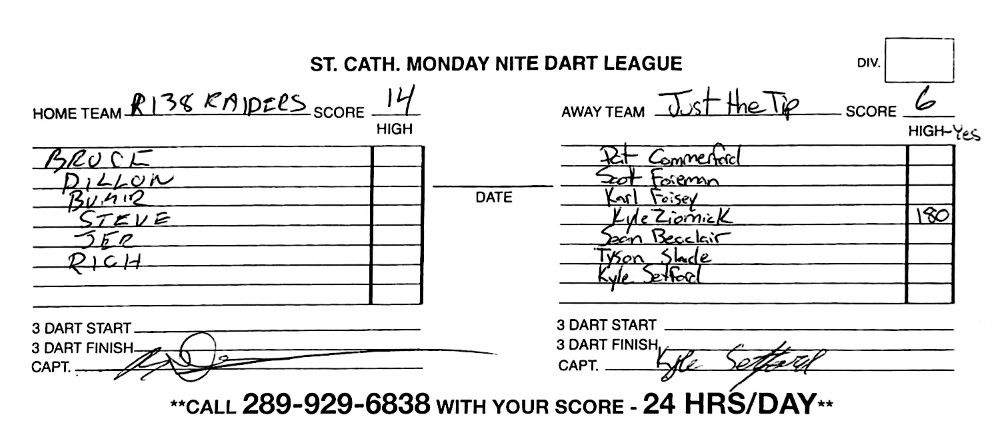 ST. CATH. MONDAY NITE DART LEAGUE
DIV.
HOME TEAM R138 RAIDERS SCORE 14
HIGH
BRUCE
DILLON
STEVE
JER
RICH
DATE
AWAY TEAM Just the Tip SCORE 6
HIGH-Yes
Pat Commerford
Scot Foreman
Karl Foisey
Kyle Ziomick 180
Sean Becclair
Tyson Slade
Kyle Setford
3 DART START
3 DART FINISH
CAPT.
3 DART START
3 DART FINISH
CAPT. Kyle Setford
**CALL 289-929-6838 WITH YOUR SCORE - 24 HRS/DAY**